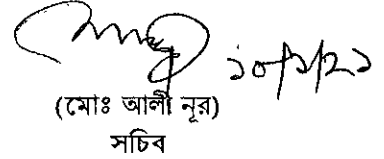 ১০/১/২১
(মোঃ আলী নূর)
সচিব